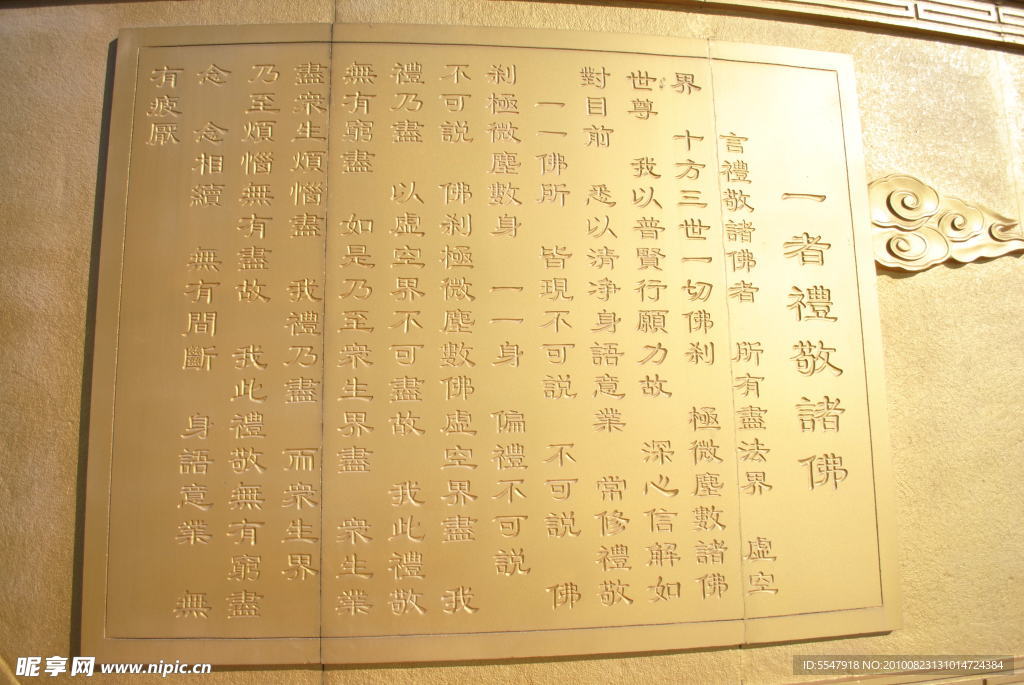 一者禮敬諸佛
言禮敬諸佛者 所有盡法界 虛空
界 十方三世一切佛刹 極微塵數諸佛
世尊 我以普賢行願力故 深心信解如
對目前 悉以清净身語意業 常修禮敬
一一佛所 皆現不可説 不可説 佛
刹極微塵數身 一一身 偏禮不可説
不可説 佛刹極微塵數佛虛空界盡 我
禮乃盡 以虛空界不可盡故 我此禮敬
無有窮盡 如是乃至衆生界盡 衆生業
盡衆生煩惱盡 我禮乃盡 而衆生界
乃至煩惱無有盡故 我此禮敬無有窮盡
念 念相續 無有間斷 身語意業 無
有疲厭
昵享网 www.nipic.cn
ID:5547918 NO:20100823131014724384